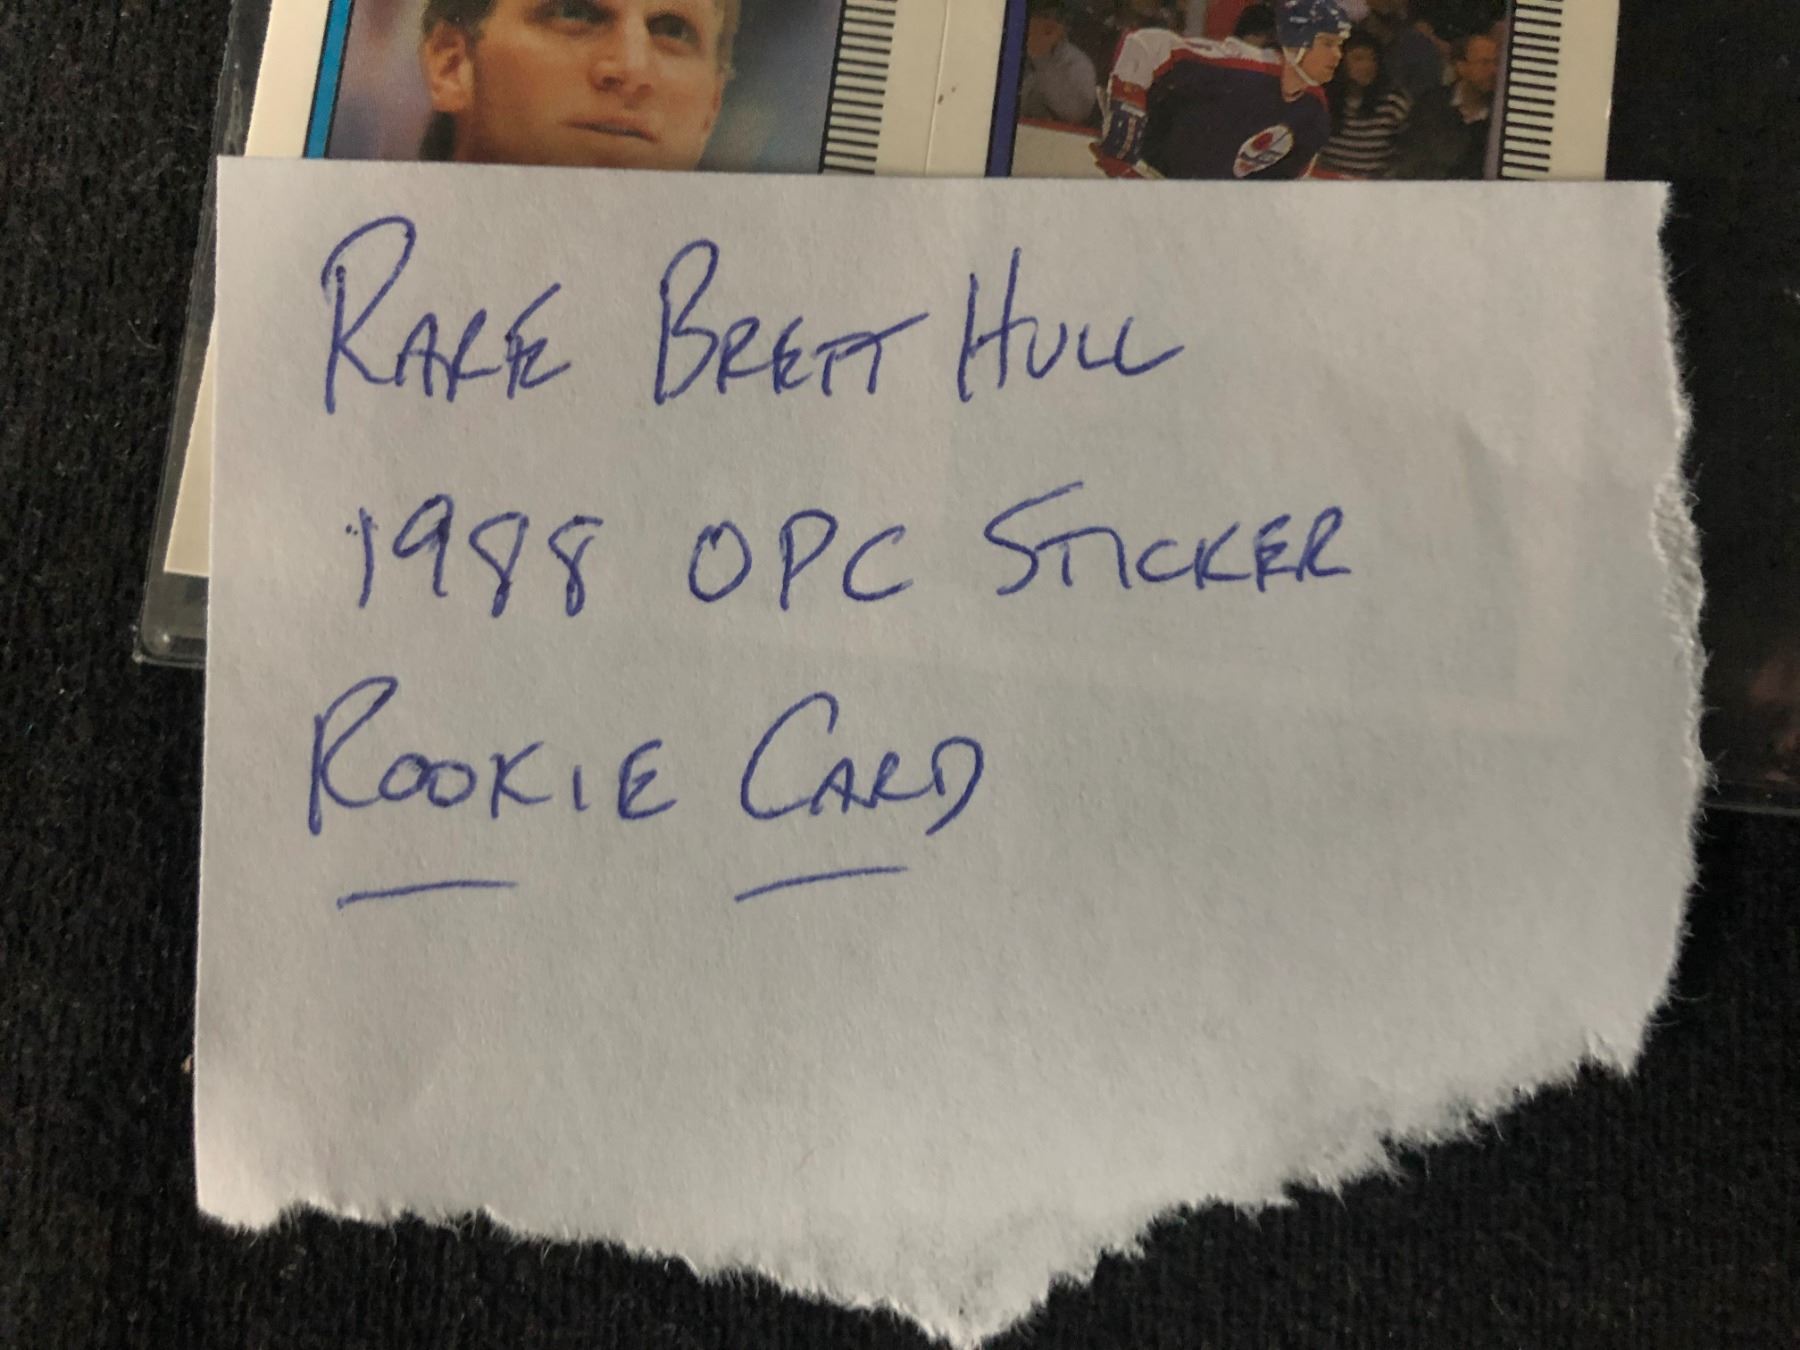 RARE BRETT HULL
1988 OPC STICKER
ROOKIE CARD